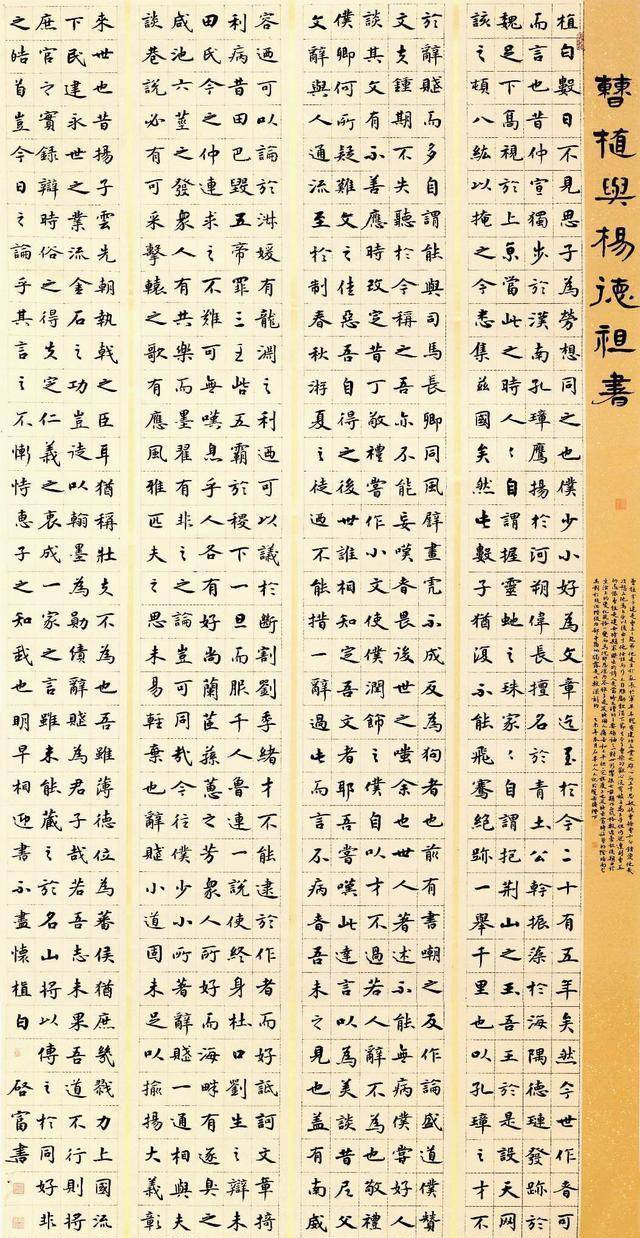 曹植與楊德祖書
植白數日不見思子為勞想同之也僕少小好為文章迄至於今二十有五年矣然今世作者可
而言也昔仲宣獨步於漢南孔璋鷹揚於河朔偉長擅名於青土公幹振藻於海隅德璉發跡於
魏足下高視於上京當此之時人〻自謂握靈蛇之珠家〻自謂抱荊山之玉吾王於是設天网
該之頓八紘以掩之今悉集茲國矣然此數子猶復不能飛騫絕跡一舉千里也以孔璋之才不
於辭賦而多自謂能與司馬長卿同風譬畫虎不成反為狗者也前有書嘲之反作論盛道僕贊
文夫鍾期不失聽於今稱之吾亦不能妄嘆者畏後世之嗤余也世人著述不能無病僕嘗好人
談其文有不善應時改定昔丁敬禮嘗作小文使僕潤飾之僕自以才不過若人辭不為也敬禮
僕卿何所疑難文之佳惡吾自得之後世誰相知定吾文者耶吾嘗嘆此達言以為美談昔尼父
文辭與人通流至於制春秋游夏之徒迺不能措一辭過此而言不病者吾未之見也蓋有南威
容迺可以論於淋媛有龍淵之利迺可以議於斷割劉季緒才不能逮於作者而好詆訶文章掎
利病昔田巴毀五帝罪三王呰五霸於稷下一旦而服千人魯連一說使終身杜口劉生之辯未
田氏今之仲連求之不難可無嘆息乎人各有好尚蘭茝蓀蕙之芳衆人所好而海畔有逐臭之
咸池六莖之發衆人有共樂而墨翟有非之之論豈可同哉今往僕少小所著辭賦一通相與夫
談巷說必有可采擊轅之歌有應風雅匹夫之思未易輕棄也辭賦小道固未足以揄揚大義彰
來世也昔揚子雲先朝執戟之臣耳猶稱壯夫不為也吾雖薄德位為蕃侯猶庶幾戮力上國流
下民建永世之業流金石之功豈徒以翰墨為勳績辭賦為君子哉若吾志未果吾道不行則將
庶官之實錄辯時俗之得失定仁義之衷成一家之言雖未能藏之於名山將以傳之於同好非
之皓首豈今日之論乎其言之不慚恃惠子之知我也明早相迎書不盡懷植白 啓富書